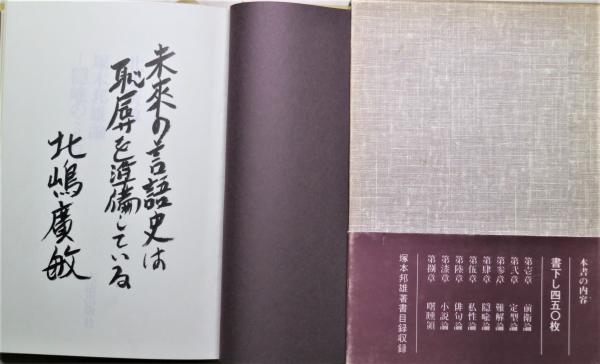 未來の言語史は
恥辱を準備している
北嶋廣敏
本書の内容
書下し四五〇枚
第壱章 前衛論
第弐章 定型論
第参章 難解論
第肆章 隠喩論
第伍章 私性論
第陸章 俳句論
第漆章 小説論
第捌章
塚本邦雄著書目録収録